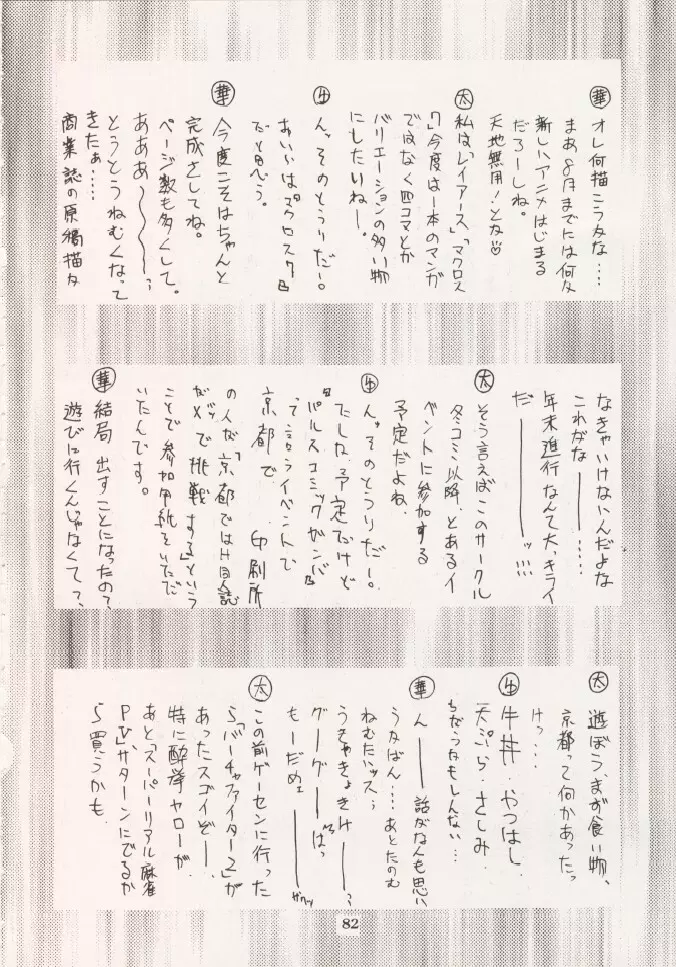 華 オレ何描こうかな……
まあ8月までには何か
新しいアニメはじまる
だろーしね。
天地無用!とか♡
太 私は「レイアース」「マクロス
7」今度は一本のマンガ
ではなく四コマとか
バリエーションの多い物
にしたいねー。
牛 んッそのとうりだー。
あいつは『マクロス7』
だと思う。
華 今度こそはちゃんと
完成さしてね。
ページ数も多くして。
あああ〜〜〜〜
とうとうねむくなって
きたぁ……
商業誌の原稿描か
なきゃいけないんだよな
これがな———……
年末進行なんて大、キライ
だ————ッ!!!
太 そう言えばこのサークル
冬コミ以降、とあるイ
ベントに参加する
予定だよね
牛 んッそのとうりだー。
たしか予定だけど
『パルスコミックガンバ』
って言うイベントで
京都で 印刷所
の人が「京都ではH同人誌
がダメで挑戦する」という
ことで参加用紙をいただ
いたんです。
華 結局、出すことになったの?
遊びに行くんじゃなくて?、
太 遊ぼう、まず食い物、
京都って何かあったっ
けっ…、
牛 牛丼・やつはし、
天ぷら・さしみ、
ちがうかもしんない…
華 ん——— 話がなんも思い
うかばん…あとたのむ
ねむたいッス
うきゃきょきけ———
グーグー——ぱっ
もーだめェ————
太 この前ゲーセンに行った
ら「バーチャファイター2」が
あったスゴイぞ——
特に酔拳ヤローが、
あと「スーパーリアル麻雀
PV」サターンにでるか
ら買うかも、
82